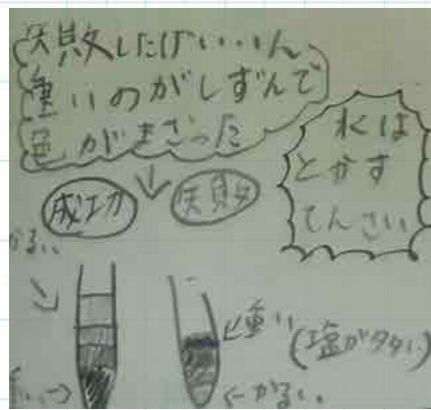 失敗したげいいん
重いのがしずんで
色がまざった
水は
とかす
てんさい
成功
失敗
かるい
重い
(塩が多い)
かるい